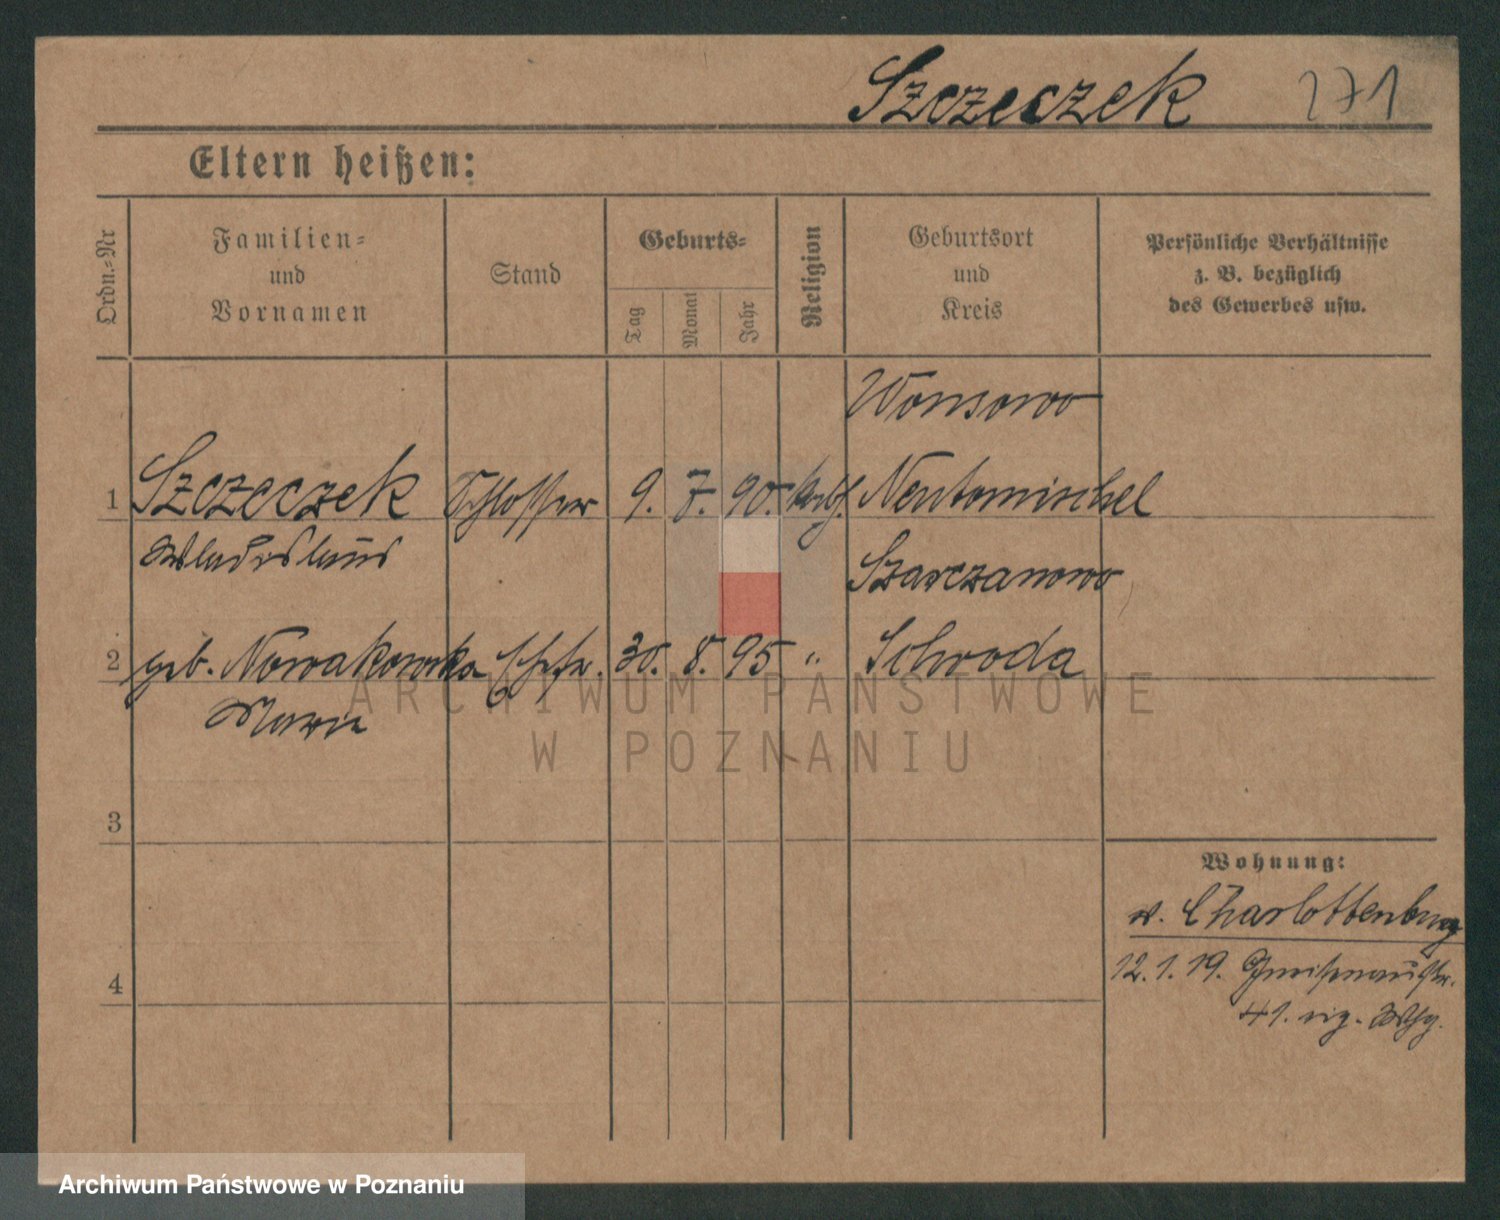 Szczeczek 271
Eltern heißen:
Ordn.-Nr
Familien-
und
Vornamen
Stand
Geburts-
Tag
Monat
Jahr
Religion
Geburtsort
und
Kreis
Persönliche Verhältnisse
z. B. bezüglich
des Gewerbes usw.
Wonsowo
1 Szczeczek Schlosser 9. 7. 90. kath. Neutomischel
Wladislaus
Szarczanowo
2 geb. Nowakowska Ehefr. 30. 8. 95 " Schroda
Maria
3
4
Wohnung:
v. Charlottenburg
12.1.19. Gneisenaustr.
41. eig. Whg.
ARCHIWUM PAŃSTWOWE
W POZNANIU
Archiwum Państwowe w Poznaniu